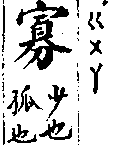 寡ㄍㄨㄚˇ
少也
孤也